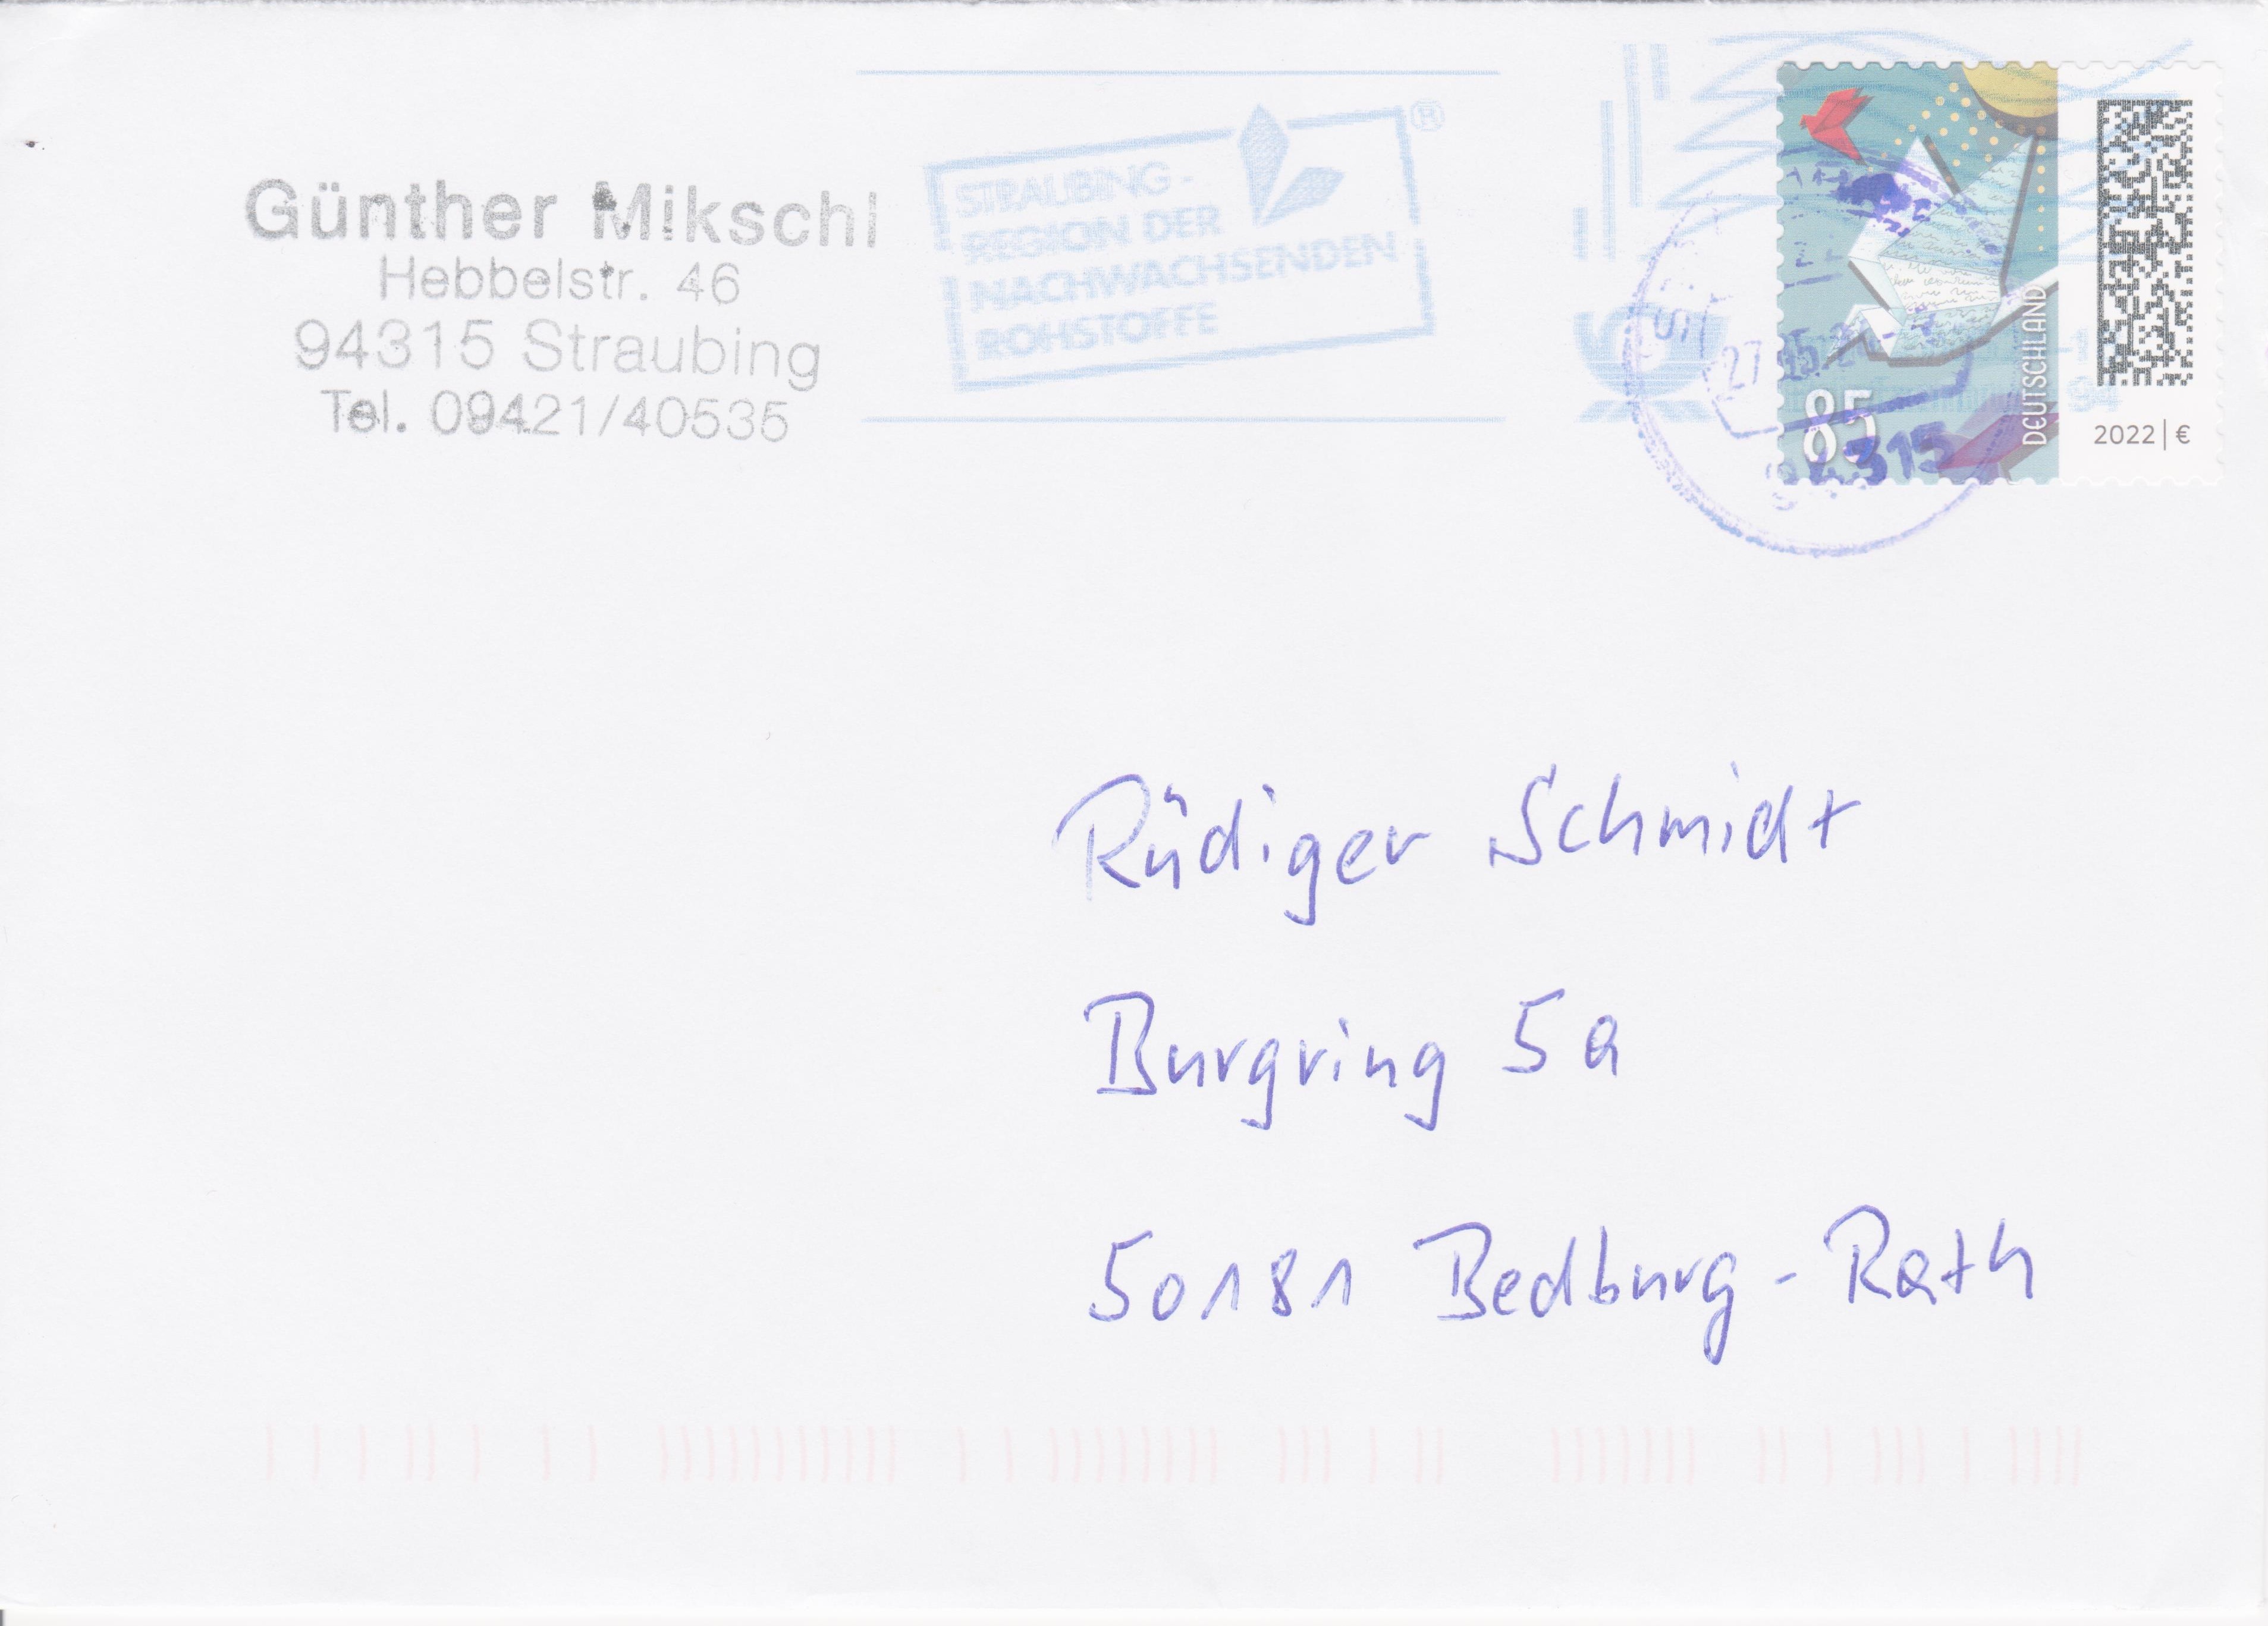 Günther Mikschl
Hebbelstr. 46
94315 Straubing
Tel. 09421/40535
STRAUBING-
REGION DER
NACHWACHSENDEN
ROHSTOFFE
®
DEUTSCHLAND
85
2022 | €
94315
Rüdiger Schmidt
Burgring 5a
50181 Bedburg-Rath